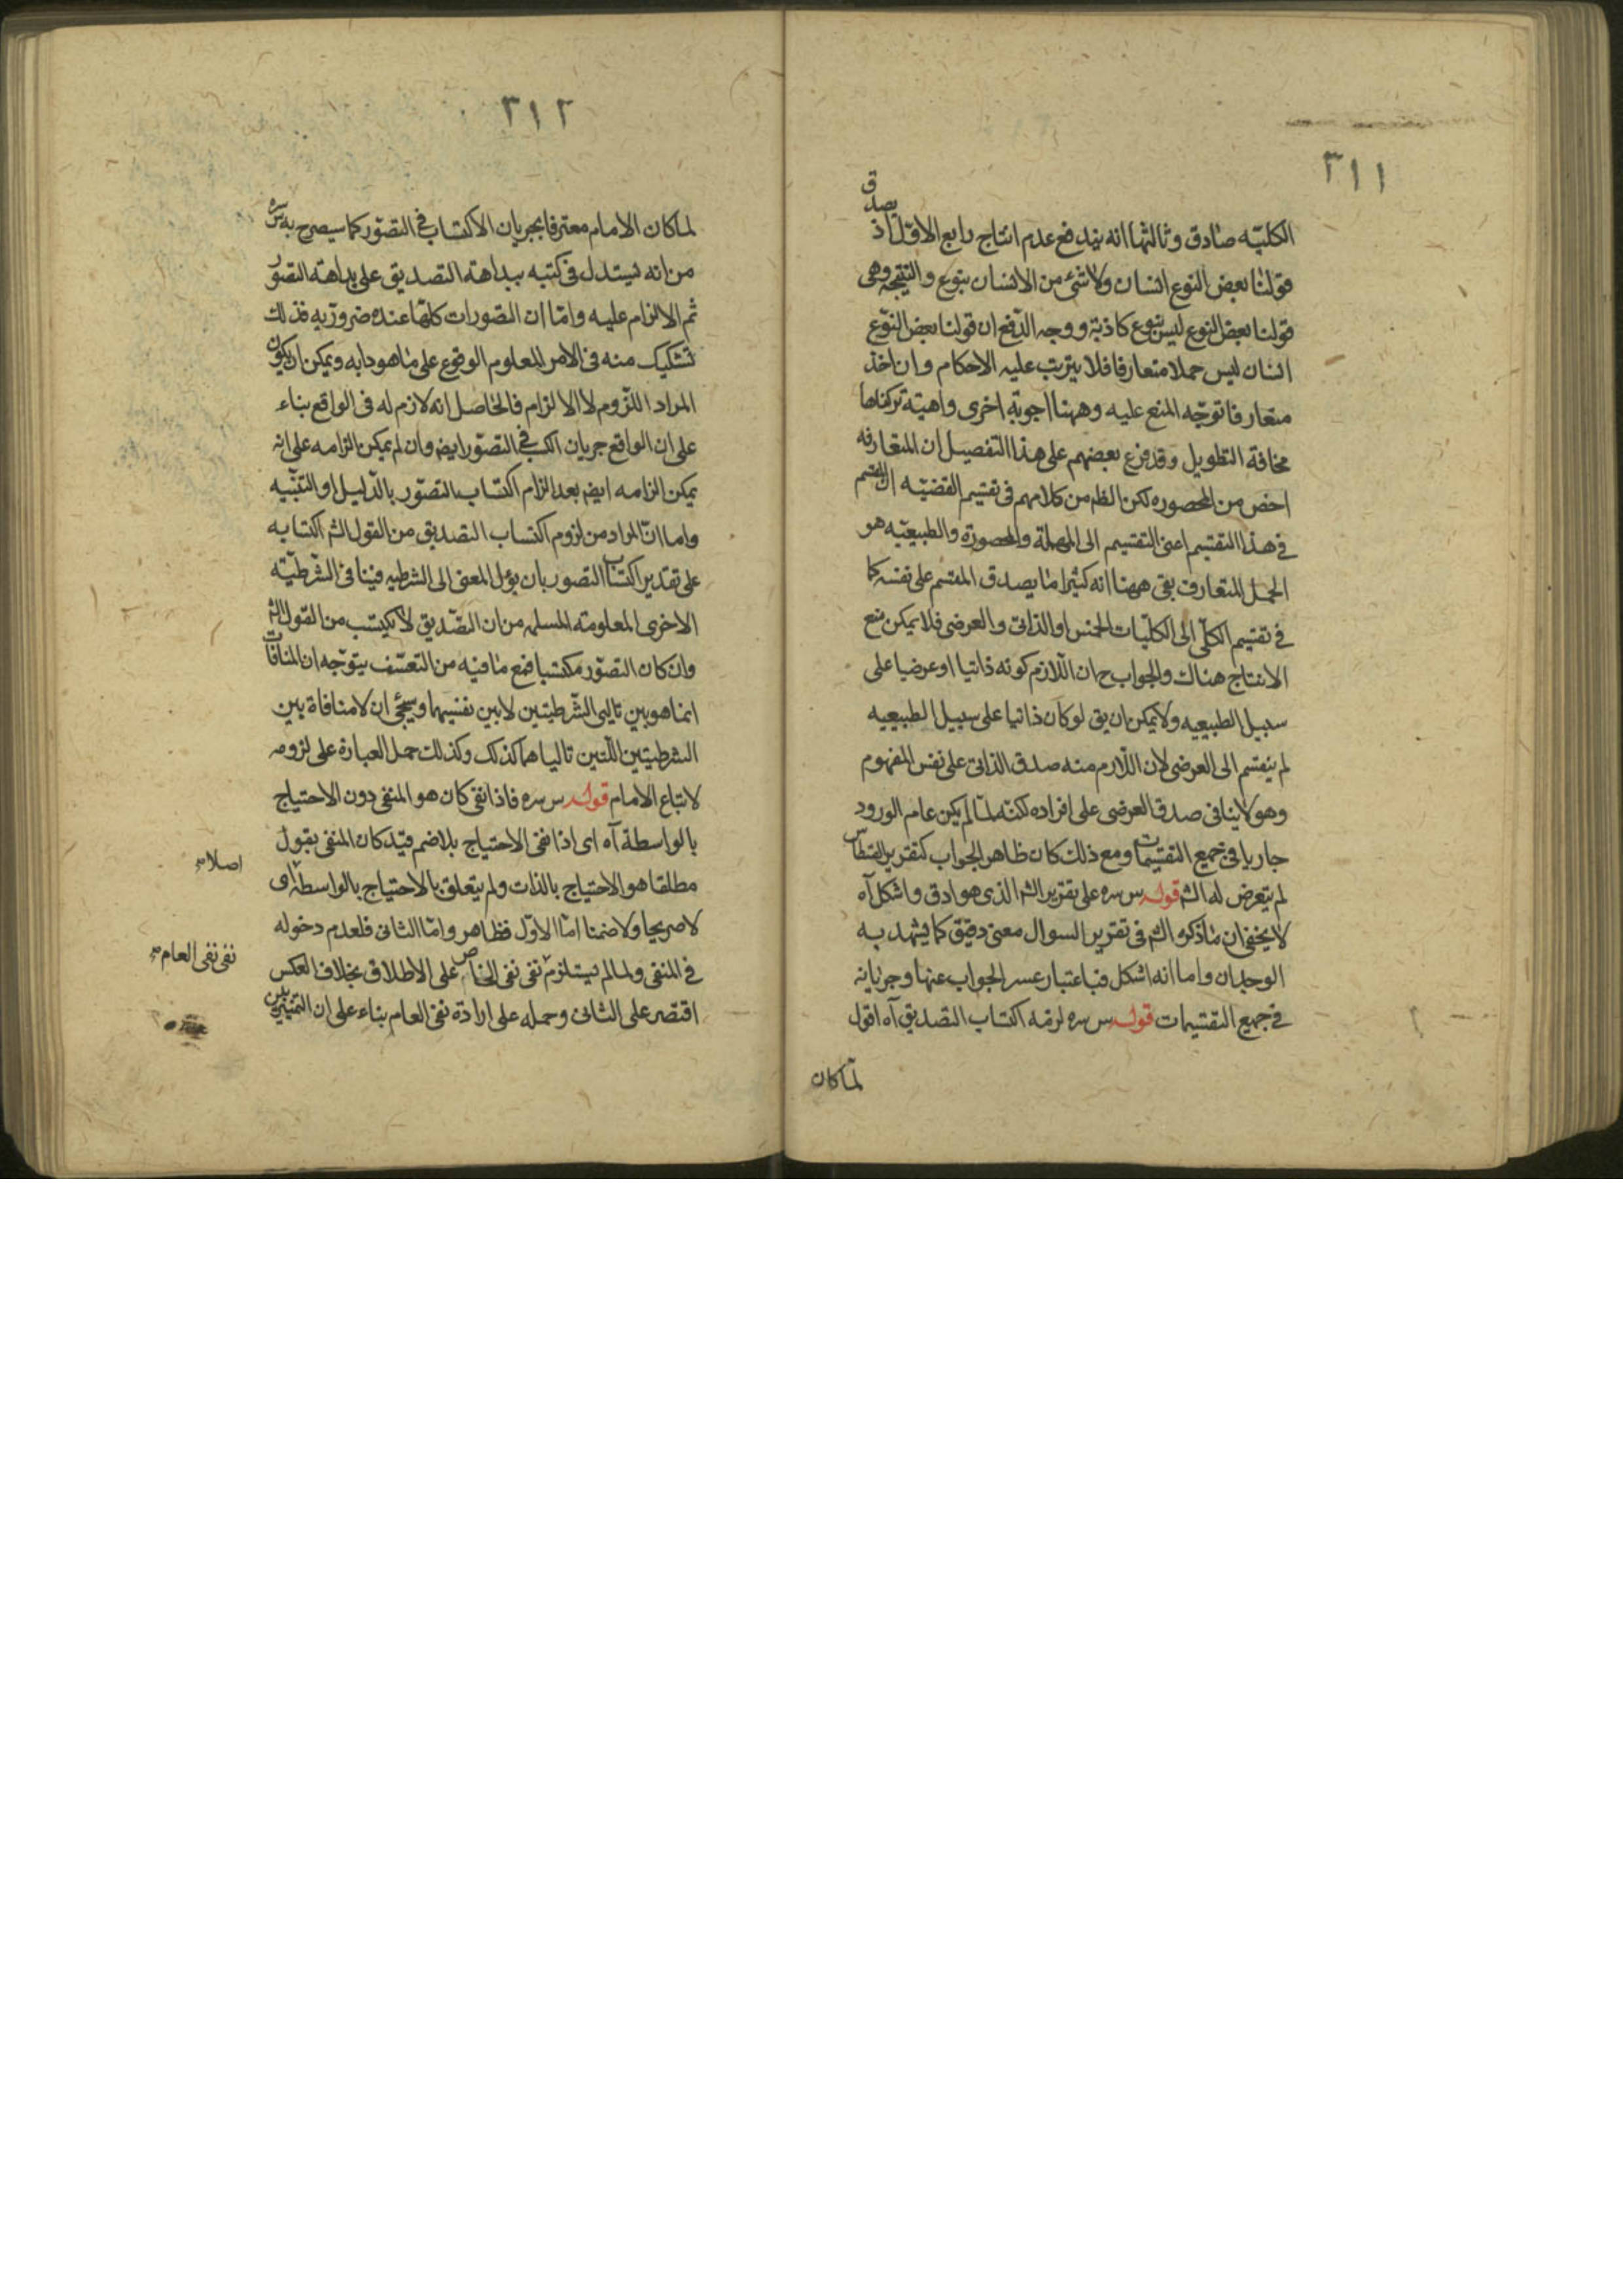 ٣١١
الكليه صادق وثالثها انه يندفع عدم انتاج رابع الاول اذ يصدق
قولنا بعض النوع انسان ولا شئ من الانسان بنوع والنتيجة وهى
قولنا بعض النوع ليس بنوع كاذبة ووجه الدفع ان قولنا بعض النوع
انسان ليس حملا متعارفا فلا يترتب عليه الاحكام وان اخذ
متعارفا توجه المنع عليه وههنا اجوبة اخرى واهية تركناها
مخافة التطويل وقد فرع بعضهم على هذا التفصيل ان المتعارفه
اخص من المحصوره لكن الظ من كلامهم فى تقسيم القضيه ان المقسم
فى هذا التقسيم اعنى التقسيم الى المهملة والمحصورة والطبيعيه هو
الحمل المتعارف بقى ههنا انه كثيرا ما يصدق المقسم على نفسه كما
فى تقسيم الكلى الى الكليات الخمس او الذاتى والعرضى فلا يمكن منع
الانتاج هناك والجواب ح ان اللازم كونه ذاتيا او عرضيا على
سبيل الطبيعيه ولا يمكن ان يق لو كان ذاتيا على سبيل الطبيعيه
لم ينقسم الى العرضى لان اللازم منه صدق الذاتى على نفس المفهوم
وهو لا ينافى صدق العرضى على افراده لكنه لما لم يكن عام الورود
جاريا فى جميع التقسيمات ومع ذلك كان ظاهر الجواب كتقرير القسطاس
لم يتعرض له الش قوله س سره على تقرير الش الذى هو ادق واشكل آه
لا يخفى ان ما ذكره الش فى تقرير السوال معنى دقيق كما يشهد به
الوجدان واما انه اشكل فباعتبار عسر الجواب عنها وجريانه
فى جميع التقسيمات قوله س سره لزمه اكتساب التصديق آه اقول
لما كان
٣١٢
لما كان الامام معترفا بجريان الاكتساب فى التصور كما سيصرح به
من انه يستدل فى كتبه ببداهة التصديق على بداهة التصور
ثم الالزام عليه واما ان التصورات كلها عنده ضرورية فذلك
تشكيك منه فى الامر المعلوم الوقوع على ما هو دابه ويمكن ان يكون
المراد اللزوم لا الالزام فالحاصل انه لازم له فى الواقع بناء
على ان الواقع جريان الكسب فى التصور ايضا وان لم يمكن الزامه على انه
يمكن الزامه ايضا بعد الزام اكتساب التصور بالدليل او التنبيه
واما ان المراد من لزوم اكتساب التصديق من القول الش اكتسابه
على تقدير اكتساب التصور بان يؤل المعنى الى الشرطيه فينافى الشرطية
الاخرى المعلومة المسلمه من ان التصديق لا يكتسب من القول الش
وان كان التصور مكتسبا فمع ما فيه من التعسف يتوجه ان المنافات
انما هو بين تاليى الشرطيتين لا بين نفسيهما وسيجئ ان لا منافاة بين
الشرطيتين اللتين تالياهما كذلك وكذلك حمل العبارة على لزومه
لاتباع الامام قوله س سره فاذا نفى كان هو المنفى دون الاحتياج
بالواسطة آه اى اذا نفى الاحتياج بلا ضم قيد كان المنفى بقول
مطلقا هو الاحتياج بالذات ولم يتعلق بالاحتياج بالواسطه
اصلا
لا صريحا ولا ضمنا اما الاول فظاهر واما الثانى فلعدم دخوله
فى المنفى ولما لم يستلزم نفى نفى الخاص على الاطلاق بخلاف العكس
نفى نفى العام
اقتصر على الثانى وحمله على ارادة نفى العام بناء على ان